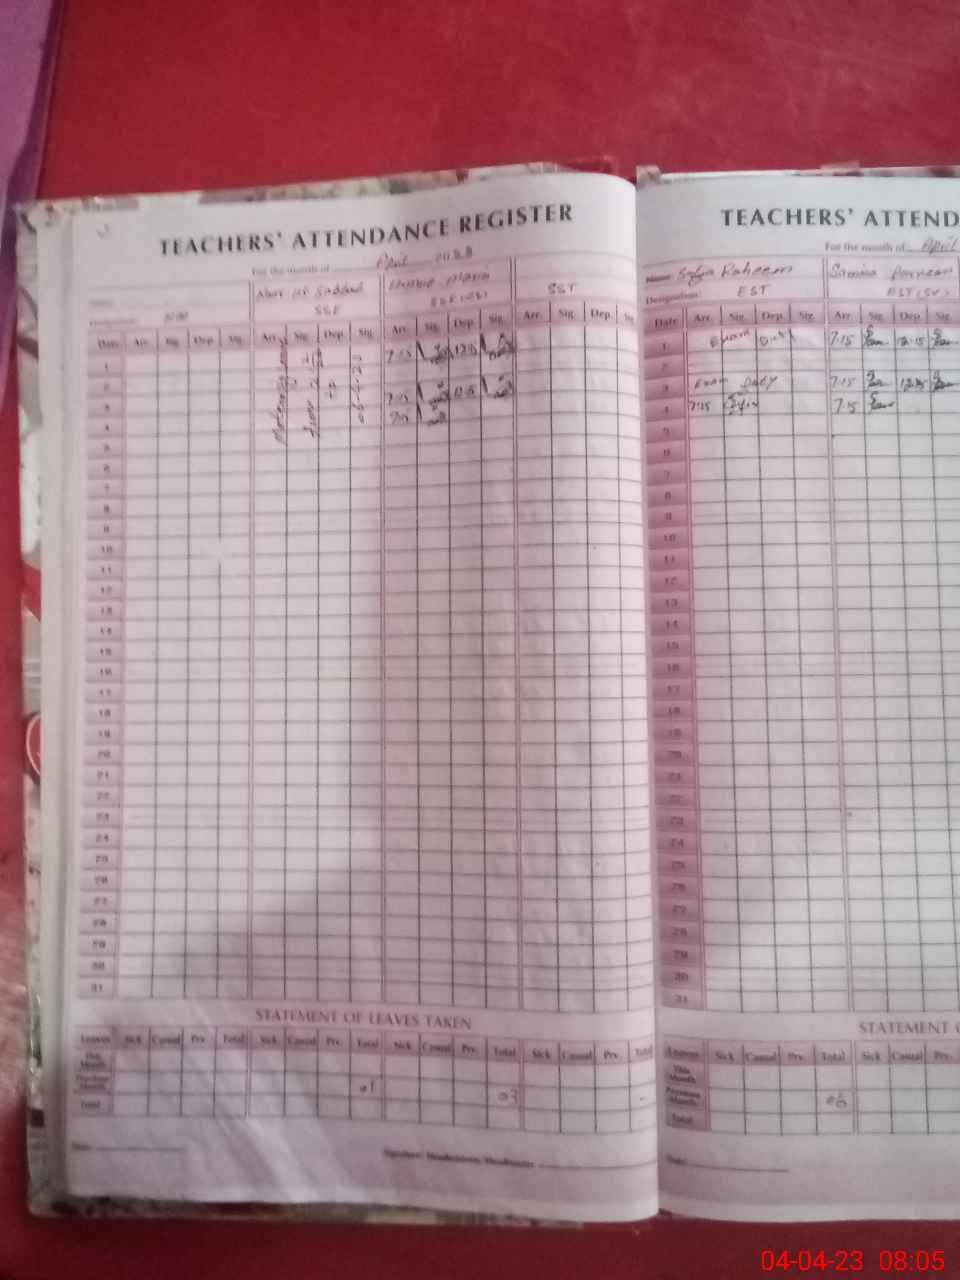 TEACHERS' ATTENDANCE REGISTER
For the month of April 2023
SSE
SST
Date Arr. Sig. Dep. Sig. Arr. Sig. Dep. Sig. Arr. Sig. Dep. Sig. Arr. Sig. Dep. Sig.
1 7:15 12:15
2
3 7:15 12:15
4 7:15
5
6
7
8
9
10
11
12
13
14
15
16
17
18
19
20
21
22
23
24
25
26
27
28
29
30
31
STATEMENT OF LEAVES TAKEN
Leaves Sick Casual Prv. Total Sick Casual Prv. Total Sick Casual Prv. Total Sick Casual Prv. Total
This Month
Previous Month 01 03
Total
Signature Headmistress/Headmaster
TEACHERS' ATTEND
For the month of April
Name: Safia Raheem Samina Parveen
Designation: EST EST
Date Arr. Sig. Dep. Sig. Arr. Sig. Dep. Sig.
1 Exam Duty 7:15 12:15
2
3 Exam Duty 7:15 12:15
4 7:15 7:15
5
6
7
8
9
10
11
12
13
14
15
16
17
18
19
20
21
22
23
24
25
26
27
28
29
30
31
STATEMENT
Leaves Sick Casual Prv. Total Sick Casual Prv.
This Month
Previous Month
Total
04-04-23 08:05